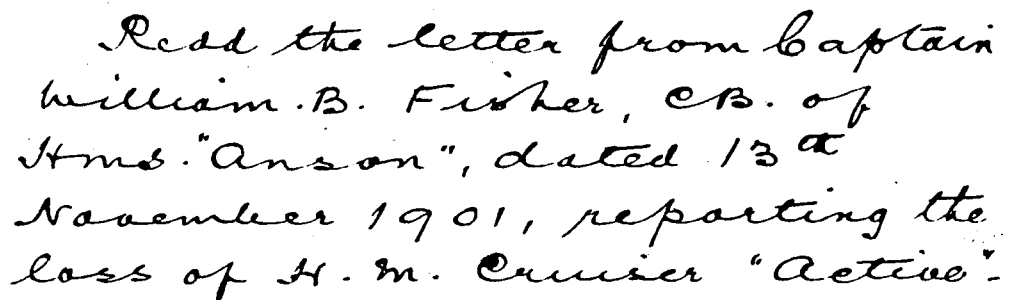 Read the letter from Captain
William.B. Fisher, CB. of
Hms. "Anson", dated 13th
November 1901, reporting the
loss of H. M. Cruiser "Active".